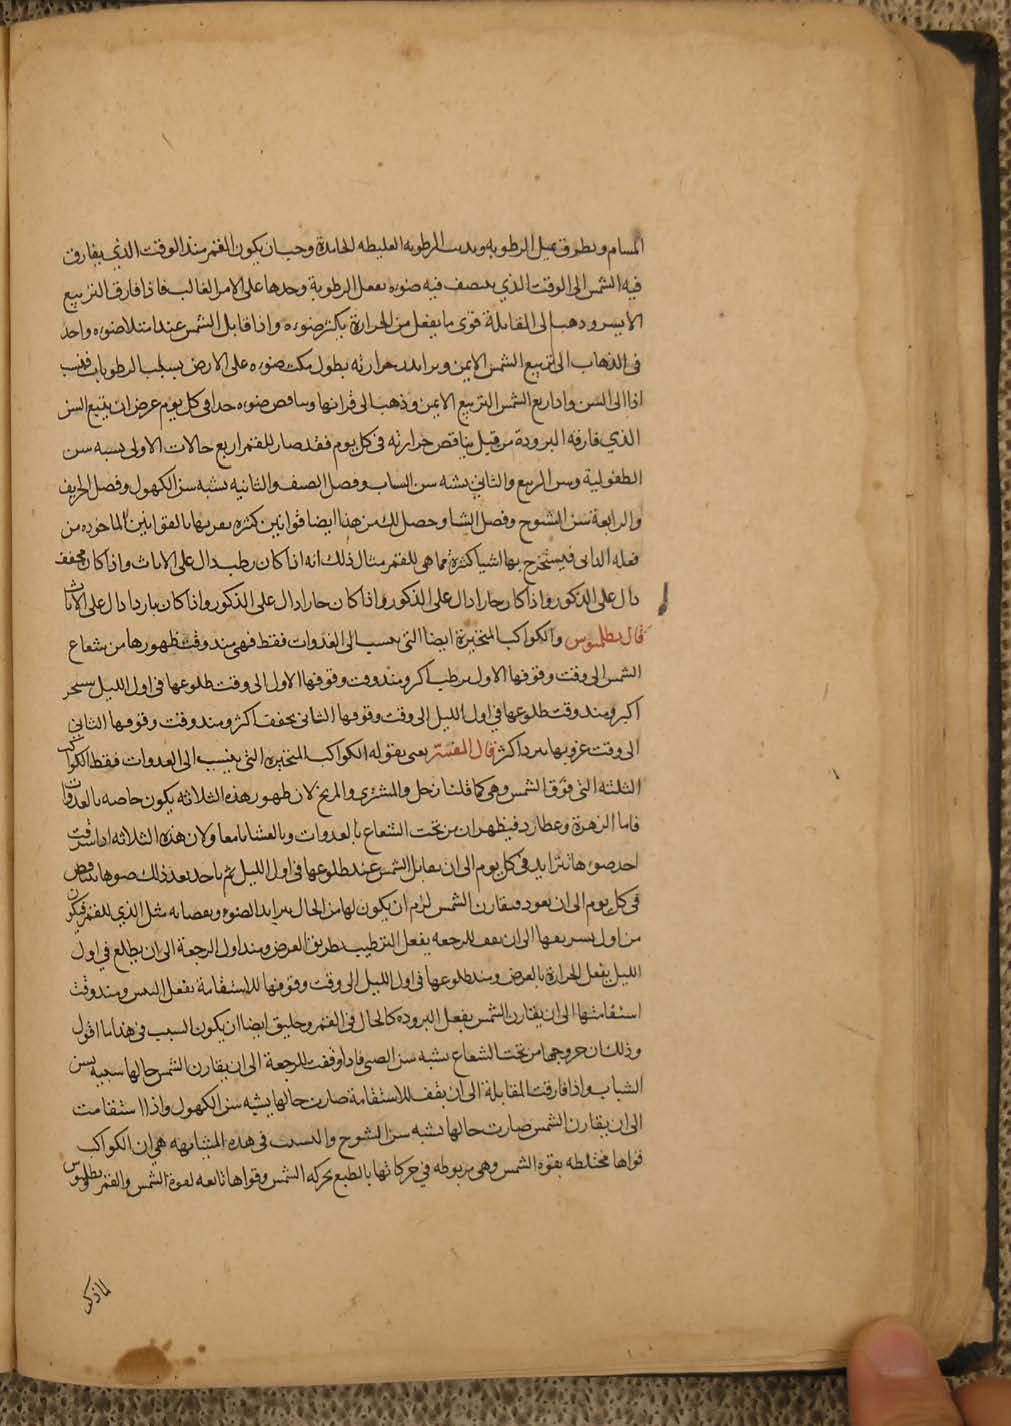 المسام وبطرق تميل الرطوبة وبديب الرطوبه الغليظه الجامدة وجب ان يكون القمر منذ الوقت الذي يفارق
فيه الشمس الى الوقت الذي ينصف فيه ضوءه يفعل الرطوبة وحدها على الامر الغالب فاذا فارق التربيع
الايسر وذهب الى المقابلة قوى ما يفعل من الحرارة بكثر ضوءه واذا قابل الشمس عند امتلا ضوءه واخذ
فى الذهاب الى تربيع الشمس الايمن وبزايد حرارته بطول مكث ضوءه على الارض يسلب الرطوبات فينسب
اذا الى اليبس واذا ربع الشمس التربيع الايمن وذهب الى قرانها وتناقص ضوءه جدا فى كل يوم عرض ان يتبع اليبس
الذي فارقه البرودة من قبل تناقص حرارته فى كل يوم فقد صار للقمر اربع حالات الاولى يشبه سن
الطفولية وسن الربيع والثاني يشبه سن الشباب وفصل الصيف والثانيه يشبه سن الكهول وفصل الخريف
والرابعة سن الشيوخ وفصل الشتا وحصل لك من هذا ايضا قوانين كثره تقرنها بالقوانين الماخوذه من
فعله الذاتى فيستخرج بها اشيا كثرة مما هى للقمر مثال ذلك انه اذا كان رطب دال على الاناث واذا كان مجفف
دال على الذكور واذا كان حارا دال على الذكور واذا كان حارا دال على الذكور واذا كان باردا دال على الاناث
قال بطلميوس والكواكب المتحيرة ايضا التى ينسب الى الغدوات فقط فهى منذ وقت ظهورها من شعاع
الشمس الى وقت وقوفها الاول يرطب اكثر ومنذ وقت وقوفها الاول الى وقت طلوعها فى اول الليل يسخن
اكثر ومنذ وقت طلوعها في اول الليل الى وقت وقوفها الثانى يجفف اكثر ومنذ وقت وقوفها الثاني
الى وقت غروبها يبرد اكثر قال المفسر يعني بقوله الكواكب المتحيره التي ينسب الى الغدوات فقط الكواكب
الثلثه التى فوق الشمس وهى كما قلنا زحل والمشتري والمريخ لان ظهور هذه الثلاثه يكون خاصه بالغدوات
فاما الزهرة وعطارد فيظهران من تحت الشعاع بالغدوات وبالعشايا معا ولان هذه الثلاثه اذا شرقت
اخذ ضوءها يتزايد فى كل يوم الى ان يقابل الشمس عند طلوعها فى اول الليل ثم ياخذ بعد ذلك ضوها يتناقص
فى كل يوم الى ان يعود فيقارن الشمس لزم ان يكون لها من الحال بتزايد الضوء ونقصانه مثل الذي للقمر فيكون
من اول تشريقها الى ان يقف للرجعه يفعل الترطيب بطريق العرض ومنذ اول الرجعة الى ان يطلع في اول
الليل يفعل الحرارة بالعرض ومنذ طلوعها فى اول الليل الى وقت وقوفها للاستقامة يفعل اليبس ومنذ وقت
استقامتها الى ان يقارن الشمس يفعل البروده كالحال فى القمر وخليق ايضا ان يكون السبب فى هذا ما اقول
وذلك ان خروجها من تحت الشعاع يشبه سن الصبى فاذا وقفت للرجعة الى ان يقارن الشمس حالها شبيه بسن
الشباب واذا فارقت المقابلة الى ان يقف للاستقامة صارت حالها يشبه سن الكهول واذا استقامت
الى ان يقارن الشمس صارت حالها يشبه سن الشيوخ والسبب فى هذه المشابهه هى ان الكواكب
قواها مختلطه بقوه الشمس وهى مربوطه في حركاتها بالطبع بحركه الشمس وقواها تابعه لقوة الشمس والقمر بطلميوس
لما ذكر